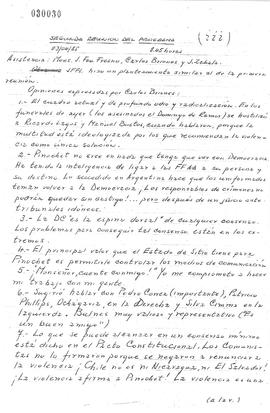 030030
SEGUNDA REUNION DEL PROGRAMA (222)
03/04/85 8.45 horas
Asistencia: Mons. J. Fco. Fresno, Carlos Briones y J. Zabala.
JFFL hizo un planteamiento similar al de la primera
reunión.
Opiniones expresadas por Carlos Briones:
1.- El cuadro actual y de profundo odio y radicalización. En los
funerales de ayer (los asesinados el Domingo de Ramos) se hostilizó
a Ricardo Lagos y Manuel Bustos, cuando hablaron, porque la
multitud está ideologizada por los que recomiendan la violen-
cia como única solución.
2.- Pinochet no cree en nada que tenga que ver con Democracia.
Ha tenido la inteligencia de ligar a las FFAA a su persona y
su destino. Lo sucedido en Argentina hace que los uniformados
teman volver a la Democracia. ¡Los responsables de crímenes no
podrán quedar sin castigo!... pero después de un juicio ante
tribunales idóneos.
3.- La DC es la espina dorsal de cualquier consenso.
Los problemas para conseguir tal consenso están en los ex-
tremos.
4.- El principal valor que el Estado de Sitio tiene para
Pinochet es permitirle controlar los medios de comunicación
5.- ¡Monseñor, cuente conmigo! Yo me comprometo a hacer
mi trabajo con mi gente.
6.- Sugirió hablar con Pedro Correa (importante), Patricio
Phillips, Ochagavía, en la derecha y Silva Cimma en la
Izquierda. Bulnes muy valioso y representativo ("Es
un buen amigo")
7.- Lo que se puede alcanzar en un consenso mínimo
está dicho en el Pacto Constitucional. Los Comunis-
tas no lo firmaron porque se negaron a renunciar a
la violencia. ¡Chile no es ni Nicaragua, ni El Salvador!
¡La violencia afirma a Pinochet! La violencia es una
(a la v.)